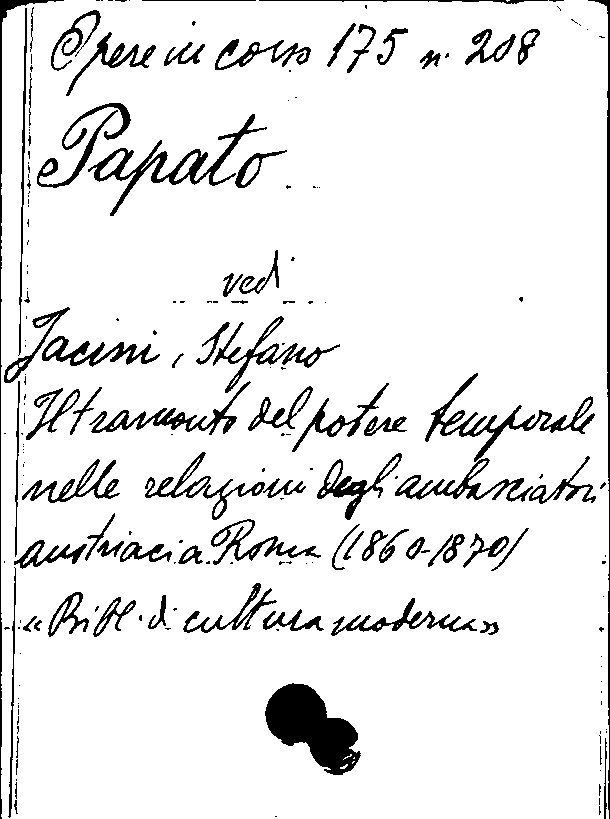 Opere in corso 175 n. 208
Papato
vedi
Jacini, Stefano
Il tramonto del potere temporale
nelle relazioni degli ambasciatori
austriaci a Roma (1860-1870)
«Bibl. di cultura moderna»